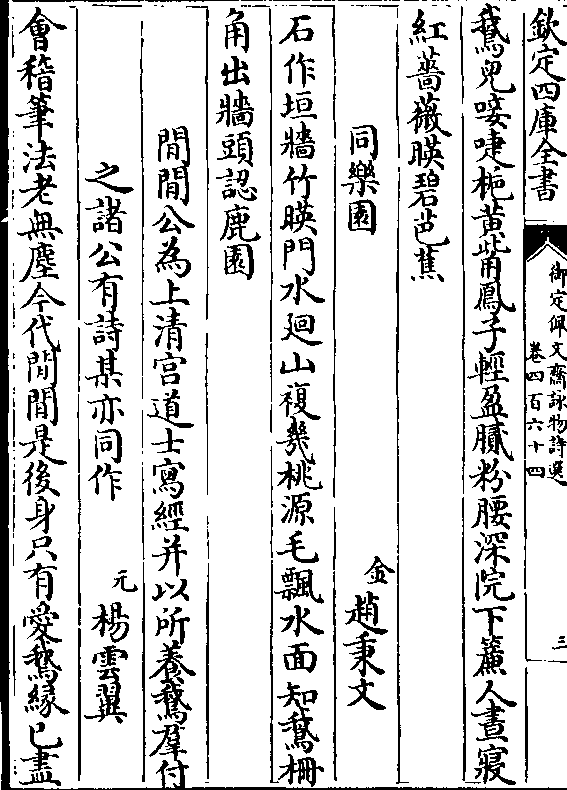 欽定四庫全書
御定佩文齋詠物詩選
卷四百六十四
三
鵞兒唼啑梔黃觜鳳子輕盈膩粉腰深院下簾人晝寢
紅薔薇暎碧芭蕉
同樂園
金 趙秉文
石作垣牆竹暎門水廻山複幾桃源毛飄水面知鵞柵
角出牆頭認鹿園
閒閒公為上清宮道士寫經并以所養鵞羣付
之諸公有詩某亦同作
元 楊雲翼
會稽筆法老無塵今代閒閒是後身只有愛鵞緣已盡